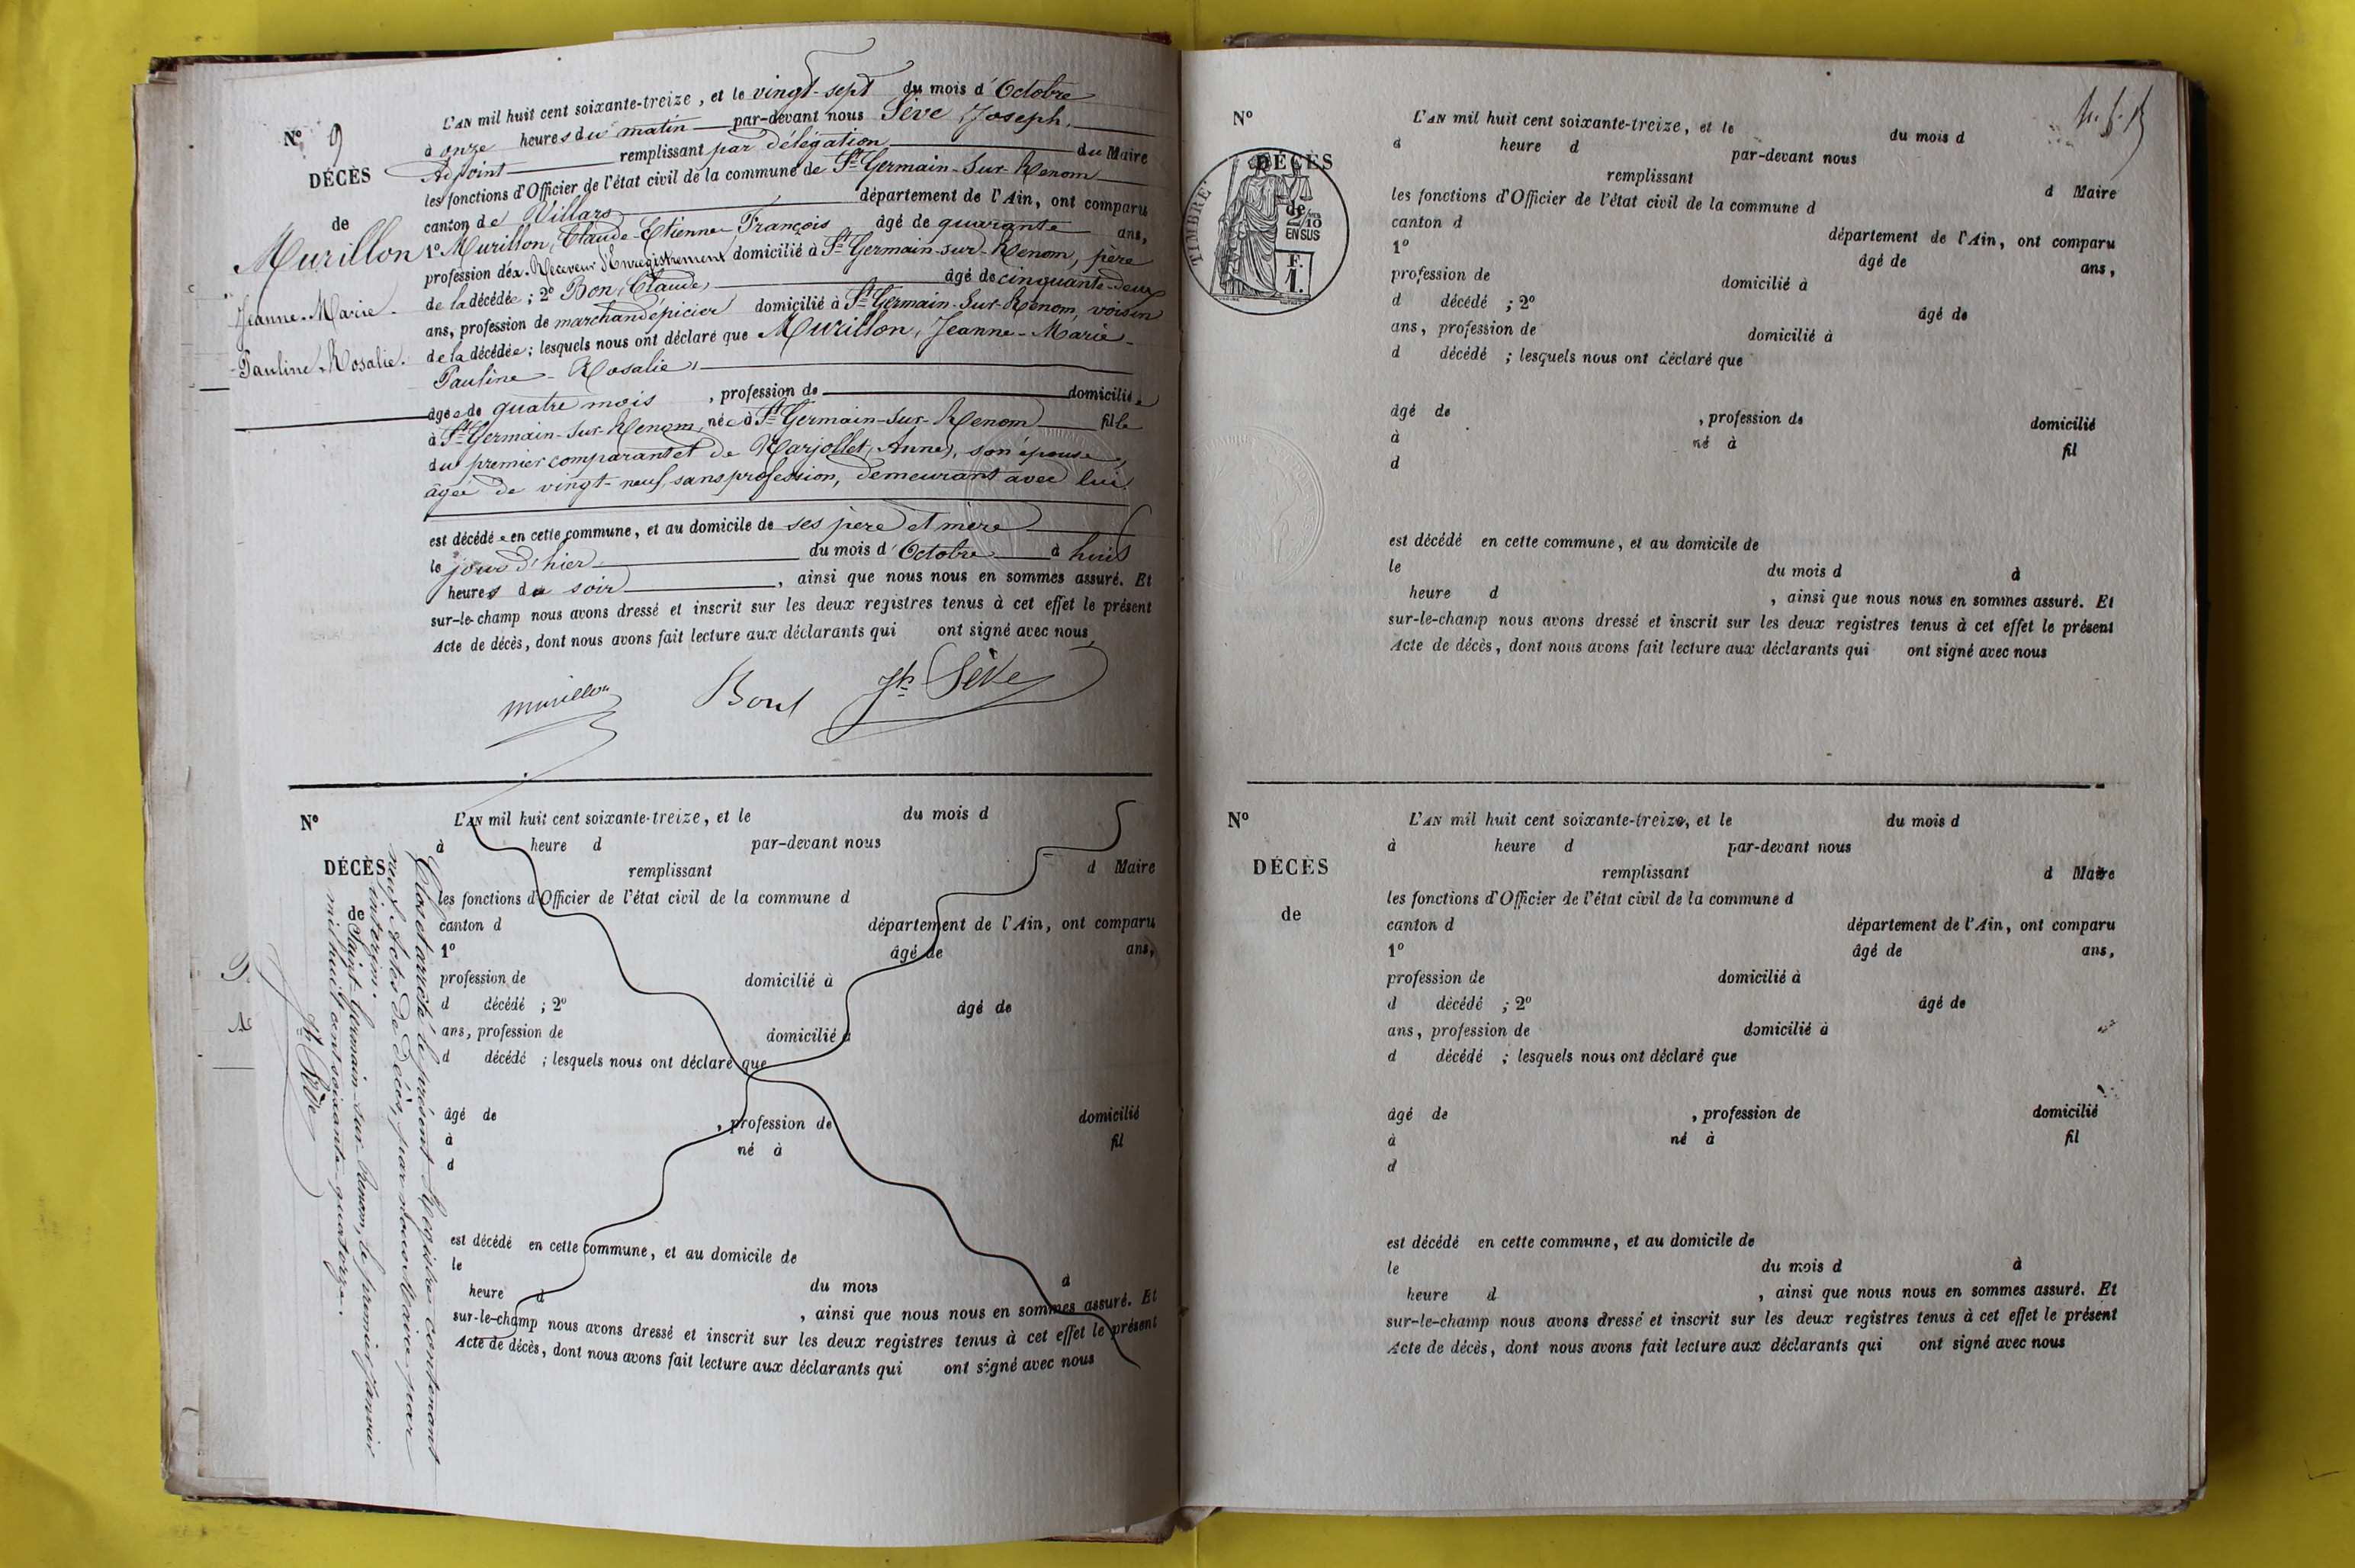 N° 9
DÉCÈS
de
Murillon
Jeanne-Marie-
Pauline-Rosalie.
L'AN mil huit cent soixante-treize, et le vingt-sept du mois d'Octobre
à onze heures du matin par-devant nous Sève Joseph,
Adjoint remplissant par délégation du Maire
les fonctions d'Officier de l'état civil de la commune de St Germain-sur-Renom
canton de Villars département de l'Ain, ont comparu
1° Murillon, Claude-Etienne-François âgé de quarante ans,
profession d'ex-Receveur d'Enregistrement domicilié à St Germain-sur-Renom, père
de la décédée ; 2° Bon, Claude, âgé de cinquante-deux
ans, profession de marchand épicier domicilié à St Germain-sur-Renom, voisin
de la décédée ; lesquels nous ont déclaré que Murillon, Jeanne-Marie-
Pauline-Rosalie,
âgée de quatre mois , profession de domiciliée
à St Germain-sur-Renom, née à St Germain-sur-Renom fille
du premier comparant et de Marjollet, Anne, son épouse,
âgée de vingt-neuf, sans profession, demeurant avec lui
est décédée en cette commune, et au domicile de ses père et mère
le jour d'hier du mois d'Octobre à huit
heures du soir , ainsi que nous nous en sommes assuré. Et
sur-le-champ nous avons dressé et inscrit sur les deux registres tenus à cet effet le présent
Acte de décès, dont nous avons fait lecture aux déclarants qui ont signé avec nous
Murillon Bont Jh Sève
N°
DÉCÈS
de
L'AN mil huit cent soixante-treize, et le du mois d
à heure d par-devant nous
remplissant d Maire
les fonctions d'Officier de l'état civil de la commune d
canton d département de l'Ain, ont comparu
1° âgé de ans,
profession de domicilié à
d décédé ; 2° âgé de
ans, profession de domicilié à
d décédé ; lesquels nous ont déclaré que
âgé de , profession de domicilié
à né à fil
d
est décédé en cette commune, et au domicile de
le du mois d à
heure d , ainsi que nous nous en sommes assuré. Et
sur-le-champ nous avons dressé et inscrit sur les deux registres tenus à cet effet le présent
Acte de décès, dont nous avons fait lecture aux déclarants qui ont signé avec nous
Clos et arrêté le présent Registre contenant
neuf Actes de Décès, par nous Maire par
intérim.
Saint-Germain-sur-Renom, le premier janvier
mil huit cent soixante-quatorze.
Jh Sève
N°
DÉCÈS
de
TIMBRE
2/10
EN SUS
F.
1.
L'AN mil huit cent soixante-treize, et le du mois d
à heure d par-devant nous
remplissant d Maire
les fonctions d'Officier de l'état civil de la commune d
canton d département de l'Ain, ont comparu
1° âgé de ans,
profession de domicilié à
d décédé ; 2° âgé de
ans, profession de domicilié à
d décédé ; lesquels nous ont déclaré que
âgé de , profession de domicilié
à né à fil
d
est décédé en cette commune, et au domicile de
le du mois d à
heure d , ainsi que nous nous en sommes assuré. Et
sur-le-champ nous avons dressé et inscrit sur les deux registres tenus à cet effet le présent
Acte de décès, dont nous avons fait lecture aux déclarants qui ont signé avec nous
N°
DÉCÈS
de
L'AN mil huit cent soixante-treize, et le du mois d
à heure d par-devant nous
remplissant d Maire
les fonctions d'Officier de l'état civil de la commune d
canton d département de l'Ain, ont comparu
1° âgé de ans,
profession de domicilié à
d décédé ; 2° âgé de
ans, profession de domicilié à
d décédé ; lesquels nous ont déclaré que
âgé de , profession de domicilié
à né à fil
d
est décédé en cette commune, et au domicile de
le du mois d à
heure d , ainsi que nous nous en sommes assuré. Et
sur-le-champ nous avons dressé et inscrit sur les deux registres tenus à cet effet le présent
Acte de décès, dont nous avons fait lecture aux déclarants qui ont signé avec nous